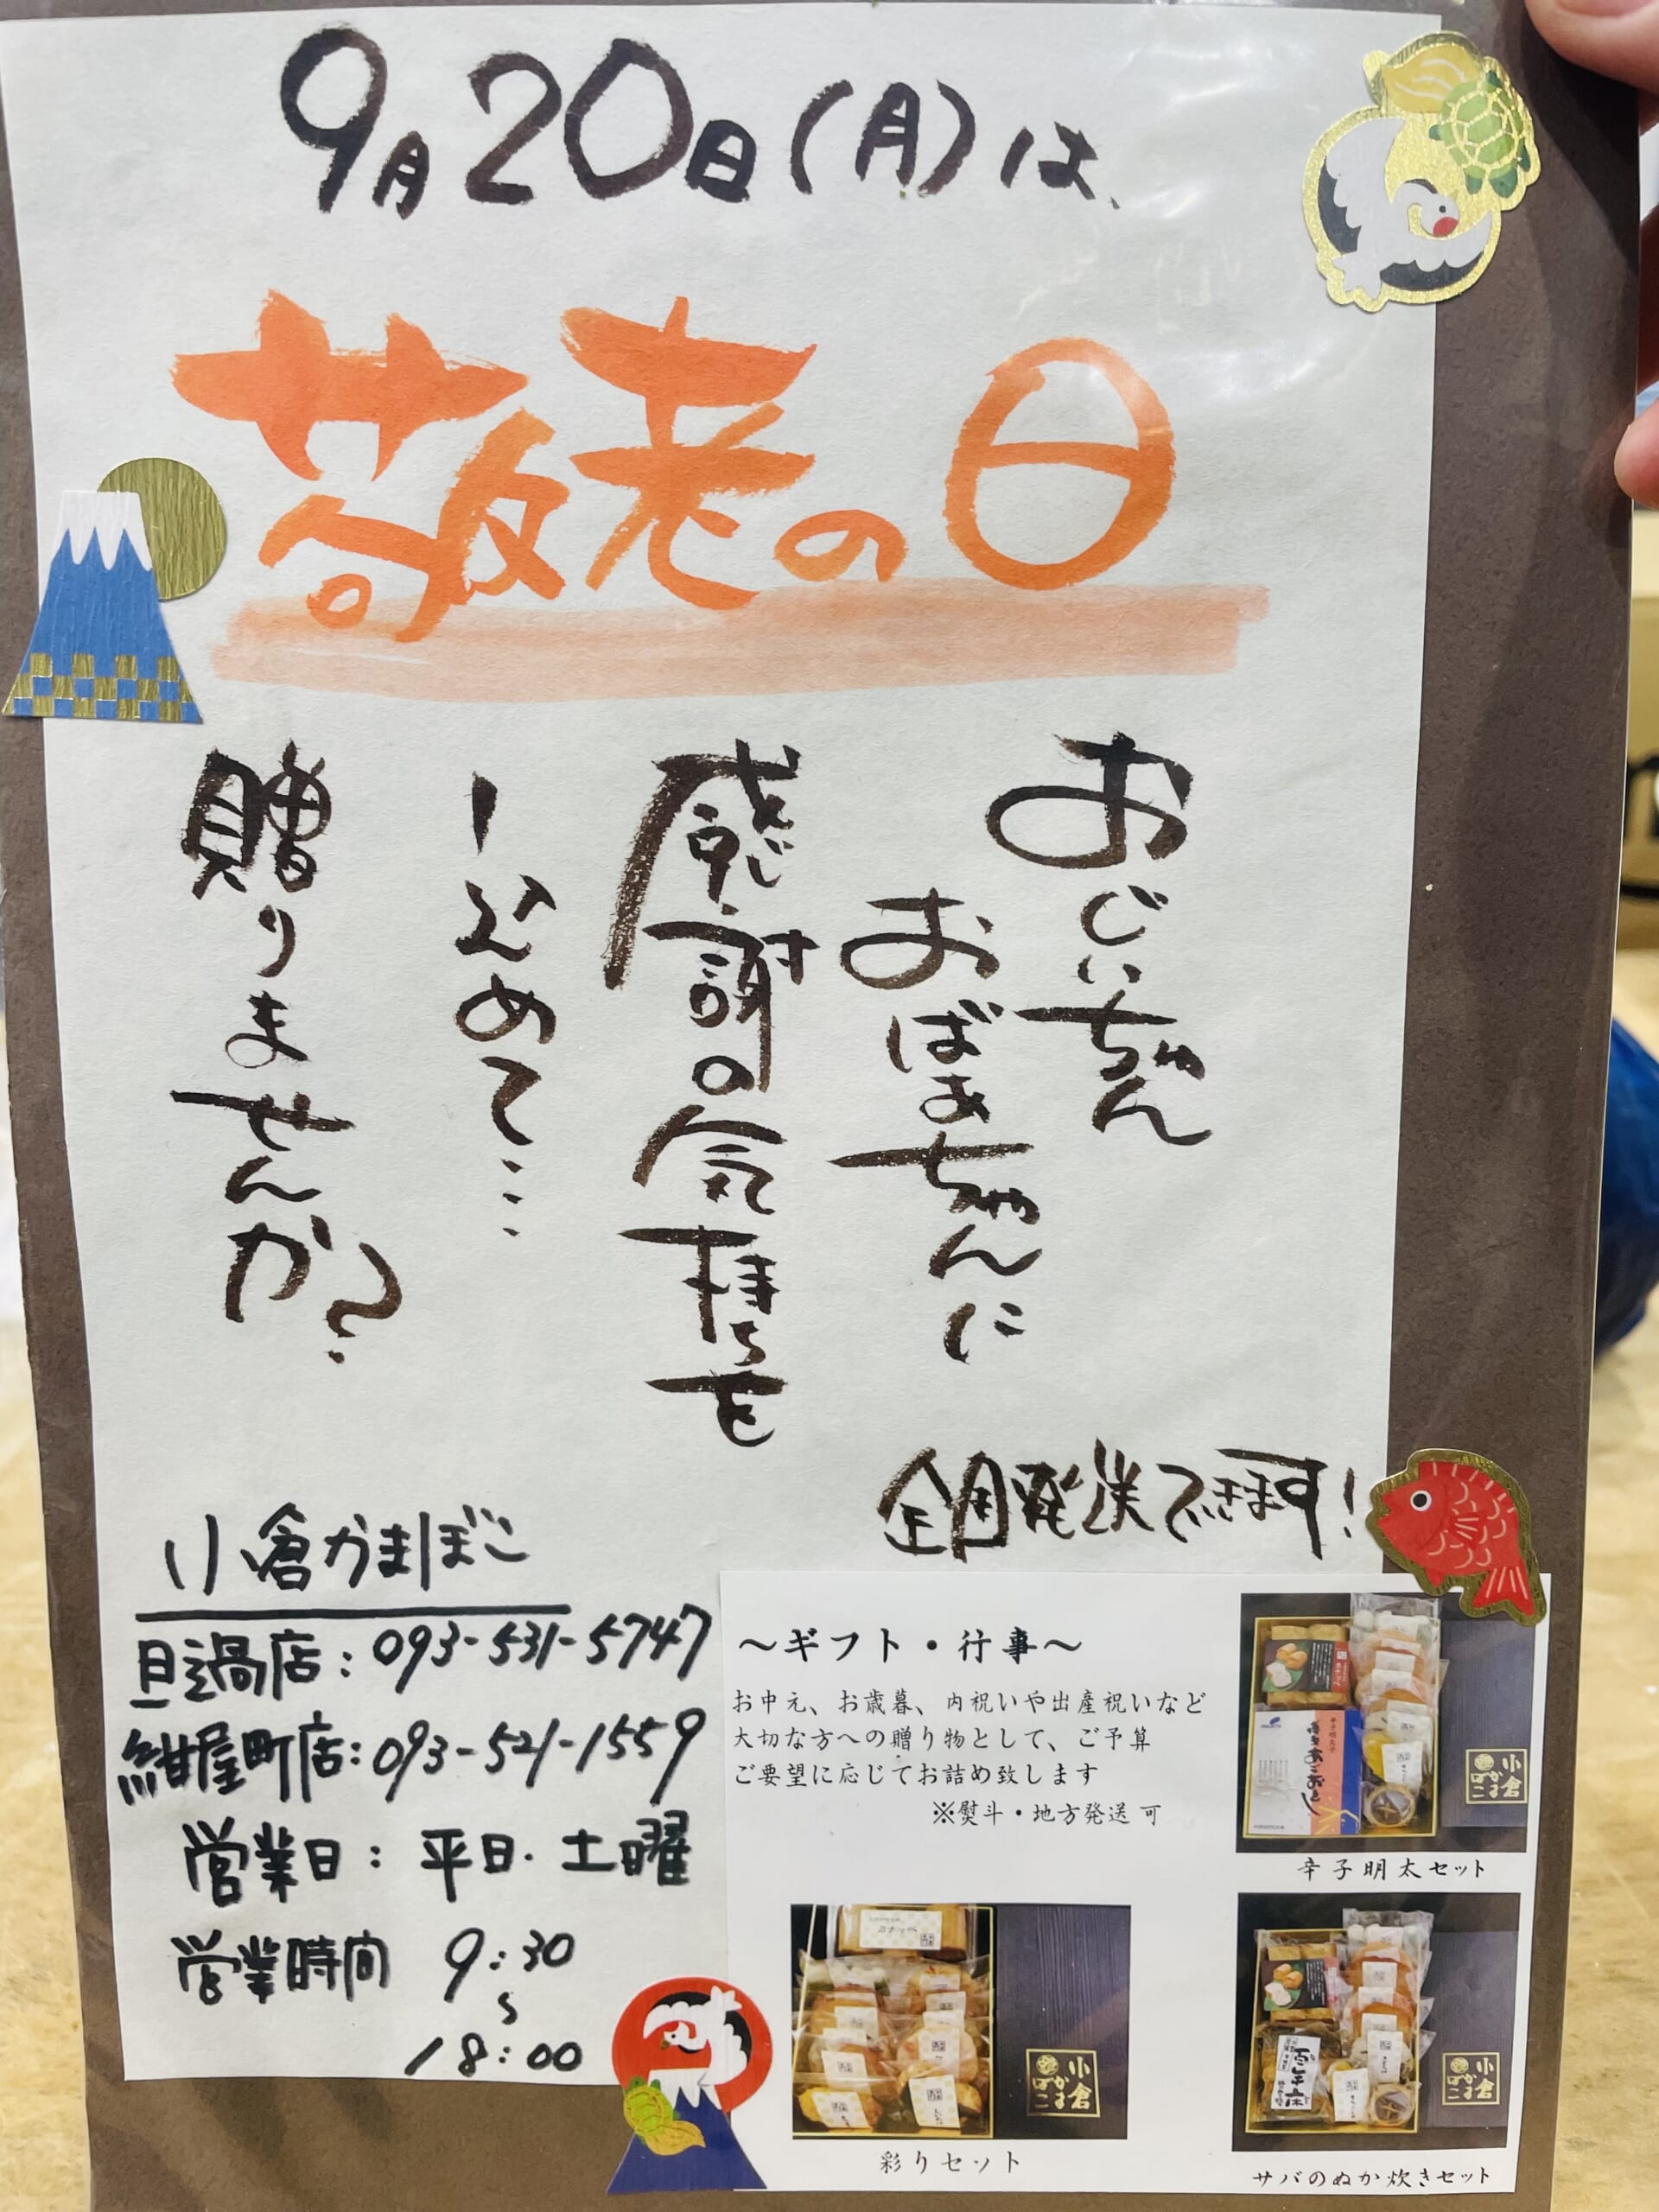 9月20日(月)は、
敬老の日
おじいちゃん
おばあちゃんに
感謝の気持ちを
込めて…
贈りませんか?
全国発送できます!
小倉かまぼこ
旦過店:093-531-5747
紺屋町店:093-521-1559
営業日:平日・土曜
営業時間 9:30
~
18:00
~ギフト・行事~
お中元、お歳暮、内祝いや出産祝いなど
大切な方への贈り物として、ご予算
ご要望に応じてお詰め致します
※熨斗・地方発送 可
小倉
かま
ぼこ
辛子明太セット
小倉
かま
ぼこ
彩りセット
小倉
かま
ぼこ
サバのぬか炊きセット